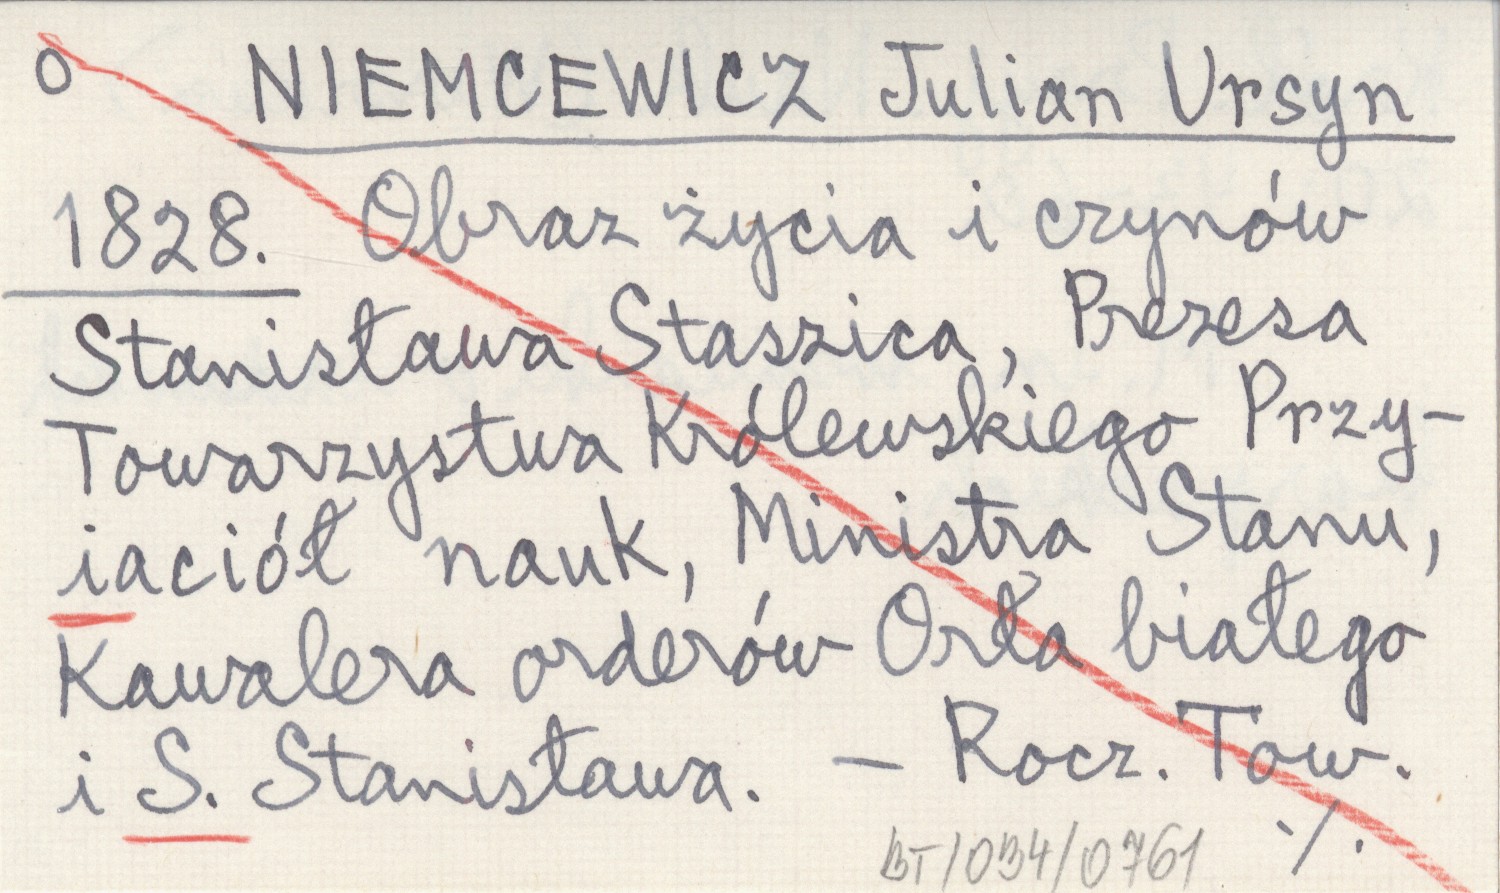 o NIEMCEWICZ Julian Ursyn
1828. Obraz życia i czynów
Stanisława Staszica, Prezesa
Towarzystwa Królewskiego Przy-
iaciół nauk, Ministra Stanu,
Kawalera orderów Orła białego
i S. Stanisława. – Rocz. Tow.
BT/034/0761 ·/.